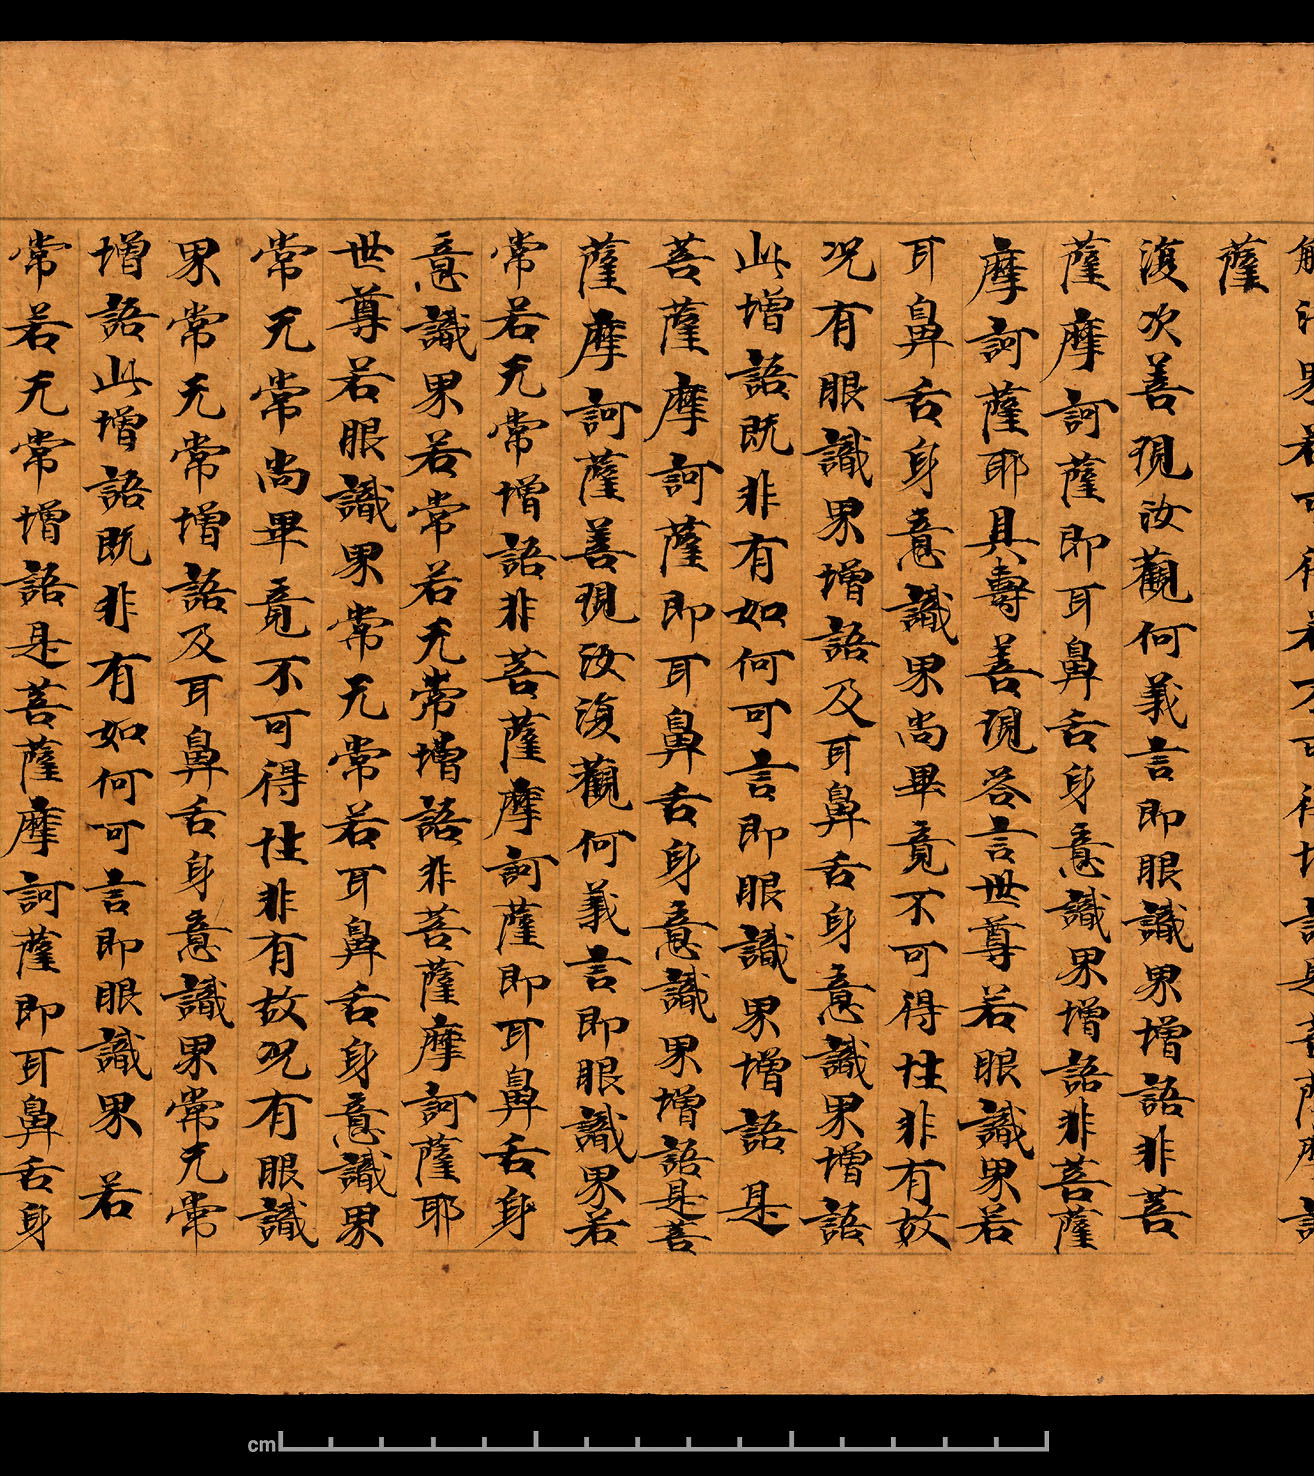 界若可得若不可得增語是菩薩摩訶
薩
復次善現汝觀何義言即眼識界增語非菩
薩摩訶薩即耳鼻舌身意識界增語非菩薩
摩訶薩耶具壽善現荅言世尊若眼識界若
耳鼻舌身意識界尚畢竟不可得性非有故
况有眼識界增語及耳鼻舌身意識界增語
此增語既非有如何可言即眼識界增語是
菩薩摩訶薩即耳鼻舌身意識界增語是菩
薩摩訶薩善現汝復觀何義言即眼識界若
常若无常增語非菩薩摩訶薩即耳鼻舌身
意識界若常若无常增語非菩薩摩訶薩耶
世尊若眼識界常无常若耳鼻舌身意識界
常无常尚畢竟不可得性非有故况有眼識
界常无常增語及耳鼻舌身意識界常无常
增語此增語既非有如何可言即眼識界若
常若无常增語是菩薩摩訶薩即耳鼻舌身
cm